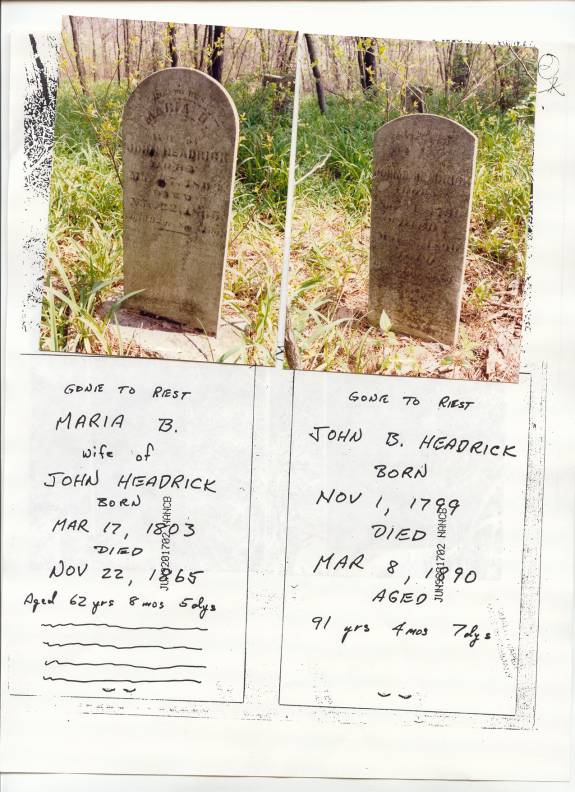 MARIA B.
WIFE OF
JOHN HEADRICK
BORN
HEADRICK
OK
GONE TO REST
MARIA B.
wife of
JOHN HEADRICK
BORN
MAR 17, 1803
DIED
NOV 22, 1865
Aged 62 yrs 8 mos 5 dys
GONE TO REST
JOHN B. HEADRICK
BORN
NOV 1, 1799
DIED
MAR 8, 1890
AGED
91 yrs 4 mos 7 dys